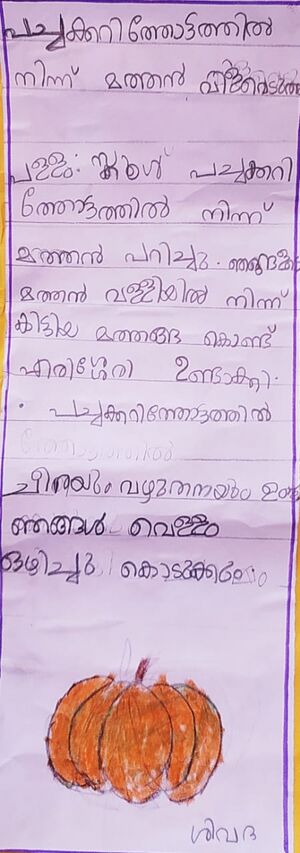 പച്ചക്കറിത്തോട്ടത്തിൽ
നിന്ന് മത്തൻ വിളവെടുത്തു
പള്ളം: സ്കൂൾ പച്ചക്കറി
ത്തോട്ടത്തിൽ നിന്ന്
മത്തൻ പറിച്ചു. ഞങ്ങളുടെ
മത്തൻ വള്ളിയിൽ നിന്ന്
കിട്ടിയ മത്തങ്ങ കൊണ്ട്
എരിശ്ശേരി ഉണ്ടാക്കി.
പച്ചക്കറിത്തോട്ടത്തിൽ
ത്തോട്ടത്തിൽ
ചീരയും വഴുതനയും
ഞങ്ങൾ വെള്ളം
ഒഴിച്ചു
ശിവദ